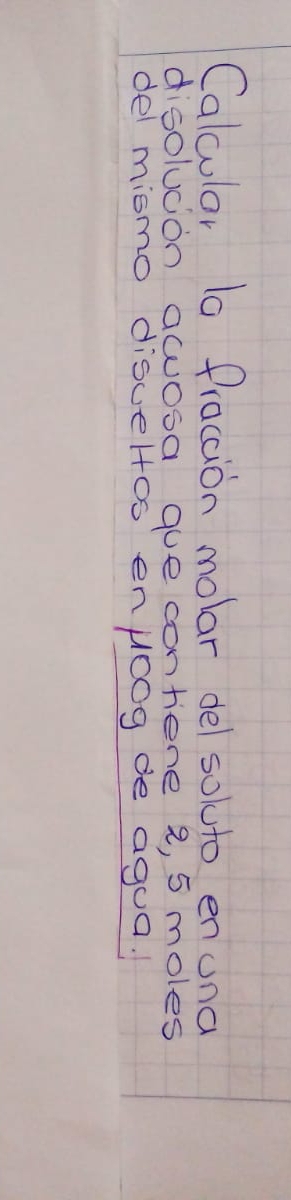 Calcular la fracción molar del soluto en una
disolución acuosa que contiene 2,5 moles
del mismo disueltos en 400g de agua.